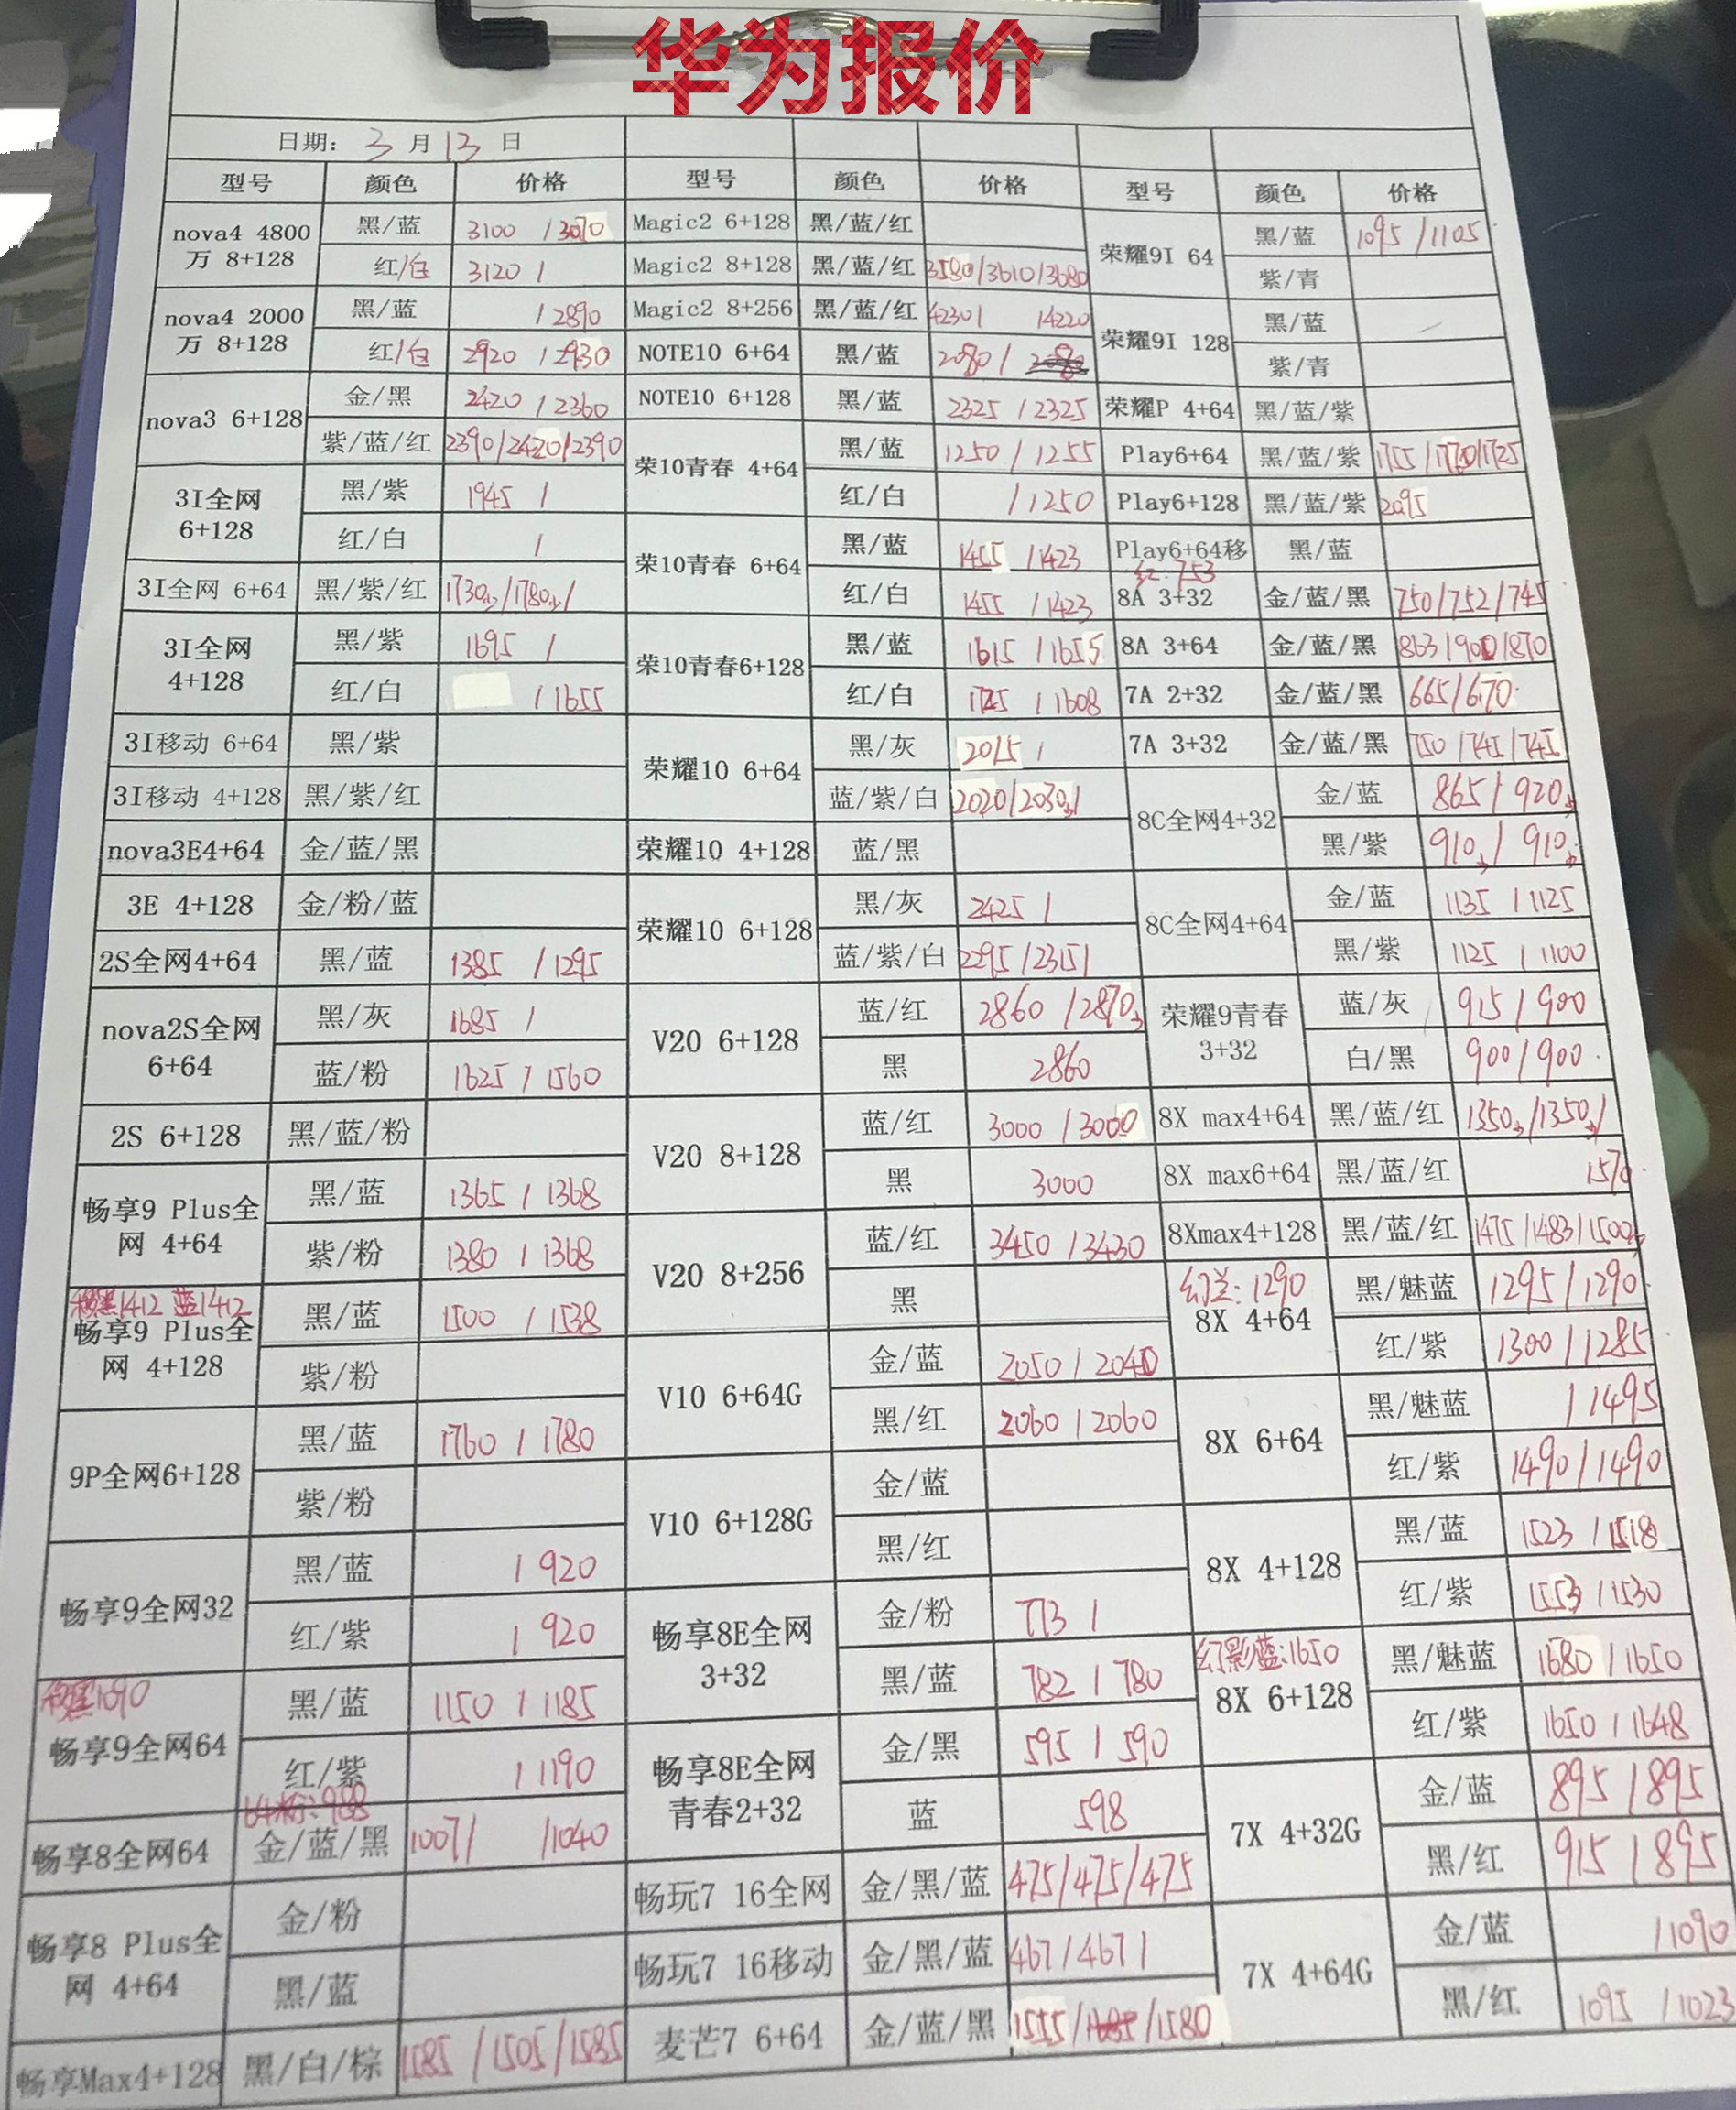 华为报价
日期: 3月13日
型号 颜色 价格 型号 颜色 价格 型号 颜色 价格
nova4 4800万 8+128 黑/蓝 3100 / 3070
红/白 3120 /
nova4 2000万 8+128 黑/蓝 / 2890
红/白 2920 / 2930
nova3 6+128 金/黑 2420 / 2360
紫/蓝/红 2390/2420/2390
3I全网 6+128 黑/紫 1945 /
红/白 /
3I全网 6+64 黑/紫/红 1730少/1780少/
3I全网 4+128 黑/紫 1695 /
红/白 / 1655
3I移动 6+64 黑/紫
3I移动 4+128 黑/紫/红
nova3E4+64 金/蓝/黑
3E 4+128 金/粉/蓝
2S全网4+64 黑/蓝 1385 / 1295
nova2S全网 6+64 黑/灰 1685 /
蓝/粉 1625 / 1560
2S 6+128 黑/蓝/粉
畅享9 Plus全网 4+64 黑/蓝 1365 / 1368
紫/粉 1380 / 1368
黑1412 蓝1412
畅享9 Plus全网 4+128 黑/蓝 1500 / 1538
紫/粉
9P全网6+128 黑/蓝 1760 / 1780
紫/粉
畅享9全网32 黑/蓝 / 920
红/紫 / 920
黑1090
畅享9全网64 黑/蓝 1150 / 1185
红/紫 / 1190
畅享8全网64 金/蓝/黑 1007/ /1040
畅享8 Plus全网 4+64 金/粉
黑/蓝
畅享Max4+128 黑/白/棕 1585 /1505/1585
Magic2 6+128 黑/蓝/红
Magic2 8+128 黑/蓝/红 3580/3610/3680
Magic2 8+256 黑/蓝/红 4230/ /4220
NOTE10 6+64 黑/蓝 2080 /
NOTE10 6+128 黑/蓝 2325 / 2325
荣10青春 4+64 黑/蓝 1250 / 1255
红/白 / 1250
荣10青春 6+64 黑/蓝 1455 / 1423
红/白 1455 / 1423
荣10青春6+128 黑/蓝 1615 / 1655
红/白 1725 / 1608
荣耀10 6+64 黑/灰 2015 /
蓝/紫/白 2020/2030少/
荣耀10 4+128 蓝/黑
荣耀10 6+128 黑/灰 2425 /
蓝/紫/白 2295 /2315/
V20 6+128 蓝/红 2860 / 2870少
黑 2860
V20 8+128 蓝/红 3000 / 3000
黑 3000
V20 8+256 蓝/红 3450 / 3430
黑
V10 6+64G 金/蓝 2050 / 2040
黑/红 2060 / 2060
V10 6+128G 金/蓝
黑/红
畅享8E全网 3+32 金/粉 773 /
黑/蓝 782 / 780
畅享8E全网青春2+32 金/黑 595 / 590
蓝 598
畅玩7 16全网 金/黑/蓝 475/475/475
畅玩7 16移动 金/黑/蓝 467/467/
麦芒7 6+64 金/蓝/黑 1555/ /1580
荣耀9I 64 黑/蓝 1095 / 1105
紫/青
荣耀9I 128 黑/蓝
紫/青
荣耀P 4+64 黑/蓝/紫
Play6+64 黑/蓝/紫 1755 /1760/1725
Play6+128 黑/蓝/紫 2095
Play6+64移 黑/蓝
红:753
8A 3+32 金/蓝/黑 750/752/745
8A 3+64 金/蓝/黑 863/900/870
7A 2+32 金/蓝/黑 665/670
7A 3+32 金/蓝/黑 750 /745/745
8C全网4+32 金/蓝 865/ 920少
黑/紫 910少/ 910少
8C全网4+64 金/蓝 1135 / 1125
黑/紫 1125 / 1100
荣耀9青春 3+32 蓝/灰 915 / 900
白/黑 900 / 900
8X max4+64 黑/蓝/红 1350少/1350少/
8X max6+64 黑/蓝/红 1570
8Xmax4+128 黑/蓝/红 1475 /1483/1500少
幻兰:1290
8X 4+64 黑/魅蓝 1295 / 1290
红/紫 1300 / 1285
8X 6+64 黑/魅蓝 / 1495
红/紫 1490 / 1490
8X 4+128 黑/蓝 1523 / 1518
红/紫 1553 / 1530
幻影蓝:1650
8X 6+128 黑/魅蓝 1680 / 1650
红/紫 1650 / 1648
7X 4+32G 金/蓝 895 / 895
黑/红 915 / 895
7X 4+64G 金/蓝 / 1090
黑/红 1095 / 1023